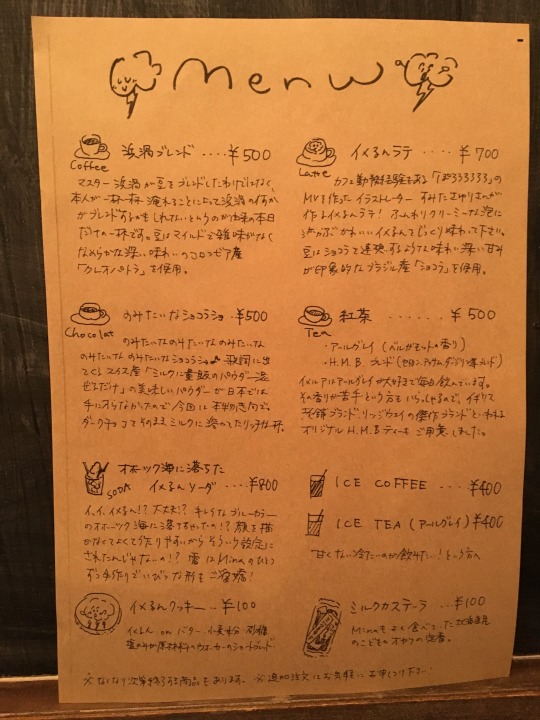 Menu
浜渦ブレンド ‥‥ ¥500
Coffee
マスター浜渦が豆をブレンドしたわけではなく、
本人が一杯一杯 淹れることによって浜渦の何かが
ブレンドするかもしれないというのが由来の本日
だけの一杯です。豆はマイルドで雑味がなく
なめらかな深い味わいのコロンビア産
「クレオパトラ」を使用。
イメるんラテ ‥‥ ¥700
Latte
カフェ勤務経験もある
MVを作ったイラストレーター
作るイメるんラテ! ふんわりクリーミーな泡に
うかぶかわいいイメるんをじっくり味わって下さい。
豆はショコラを連想するような味わい深い甘み
が印象的なブラジル産「ショコラ」を使用。
のみたいなショコラショ ‥ ¥500
Chocolat
のみたいなのみたいな のみたいな
のみたいな のみたいなショコラショ♪ 歌詞に出
てくるスイス産「ミルクに適量のパウダー混
ぜるだけ」の美味しいパウダーが日本では
手に入らなかったので今回は
ダークチョコをそのままミルクに溶かしたリッチな一杯。
紅茶 ‥‥‥ ¥500
Tea
・アールグレイ (ベルガモットの香り)
・H.M.B ブレンド (セイロン、アッサム、ダージリン
イメルアはアールグレイが大好きで毎日飲んでいます。
その香りが苦手という方もいらっしゃるので、イギリス
老舗ブランド、リッジウェイの傑作ブランドといわれる
オリジナル H.M.Bティーもご用意しました。
オホーツク海に落ちた
イメるんソーダ ‥ ¥800
SODA
イ、イ、イメるん!? 大丈夫!? キレイなブルーカラー
のオホーツク海に落ちちゃったの!? 顔を描
かなくてよくて作りやすいからそういう設定に
されたんじゃないの!? 雲はMinaのひとつ
ずつ手作りでいびつな形もご愛嬌!
ICE COFFEE ‥‥ ¥400
ICE TEA (アールグレイ) ¥400
"甘くない冷たいのが飲みたい!"という方へ
イメるんクッキー ‥ ¥100
イメるん on バター、小麦粉、砂糖、
塩のみが原材料のウォーカーのショートブレッド
ミルクカステーラ ‥ ¥100
Minaもよく食べていた北海道民
のこどものオヤツの定番。
※なくなり次第終了する商品もあります。 ※追加注文はお気軽にお申しつけ下さい